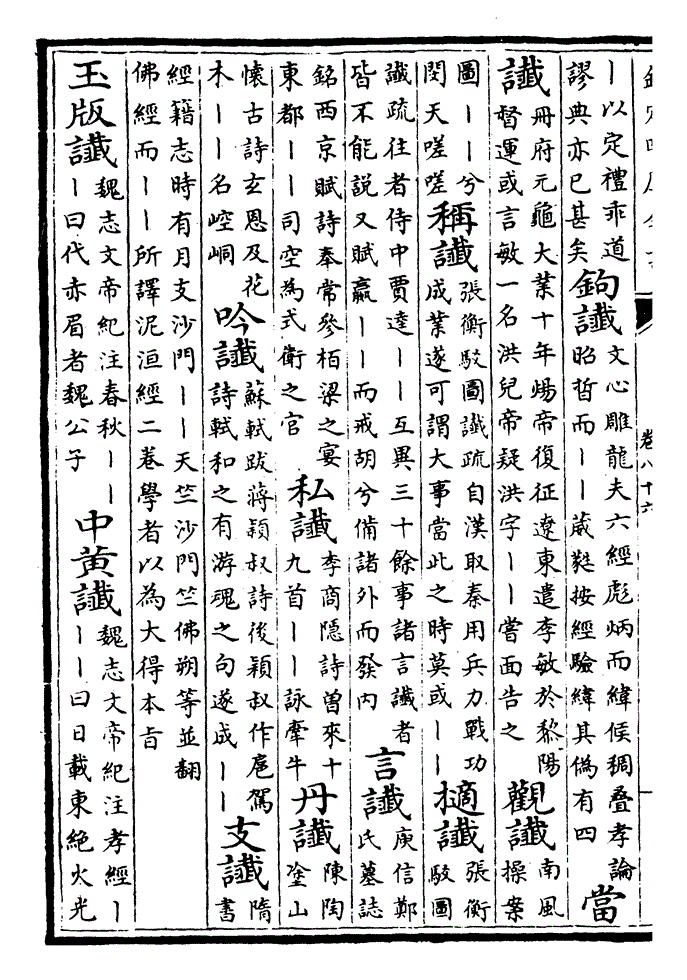 卷八十六
丨以定禮乖道
謬典亦已甚矣
鉤讖
文心雕龍夫六經彪炳而緯候稠叠孝論
昭晢而丨丨葳蕤按經驗緯其偽有四
當讖
冊府元龜大業十年煬帝復征遼東遣李敏於黎陽
督運或言敏一名洪兒帝疑洪字丨丨嘗面告之
觀讖
南風
操案
圖丨丨兮
閔天嗟嗟
稱讖
張衡駁圖讖疏自漢取秦用兵力戰功
成業遂可謂大事當此之時莫或丨丨
擿讖
張衡
駁圖
讖疏往者侍中賈逵丨丨互異三十餘事諸言讖者
皆不能説又賦羸丨丨而戒胡兮備諸外而發内
言讖
庾信鄭
氏墓誌
銘西京賦詩奉常參栢梁之宴
東都丨丨司空為式衛之官
私讖
李商隱詩曽來十
九首丨丨詠牽牛
丹讖
陳陶
塗山
懷古詩玄恩及花
木丨丨名崆峒
吟讖
蘇軾跋蔣穎叔詩後穎叔作扈駕
詩軾和之有游魂之句遂成丨丨
支讖
隋
書
經籍志時有月支沙門丨丨天竺沙門竺佛朔等並翻
佛經而丨丨所譯泥洹經二卷學者以為大得本旨
玉版讖
魏志文帝紀注春秋丨丨
丨曰代赤眉者魏公子
中黄讖
魏志文帝紀注孝經丨
丨丨曰日載東絶火光